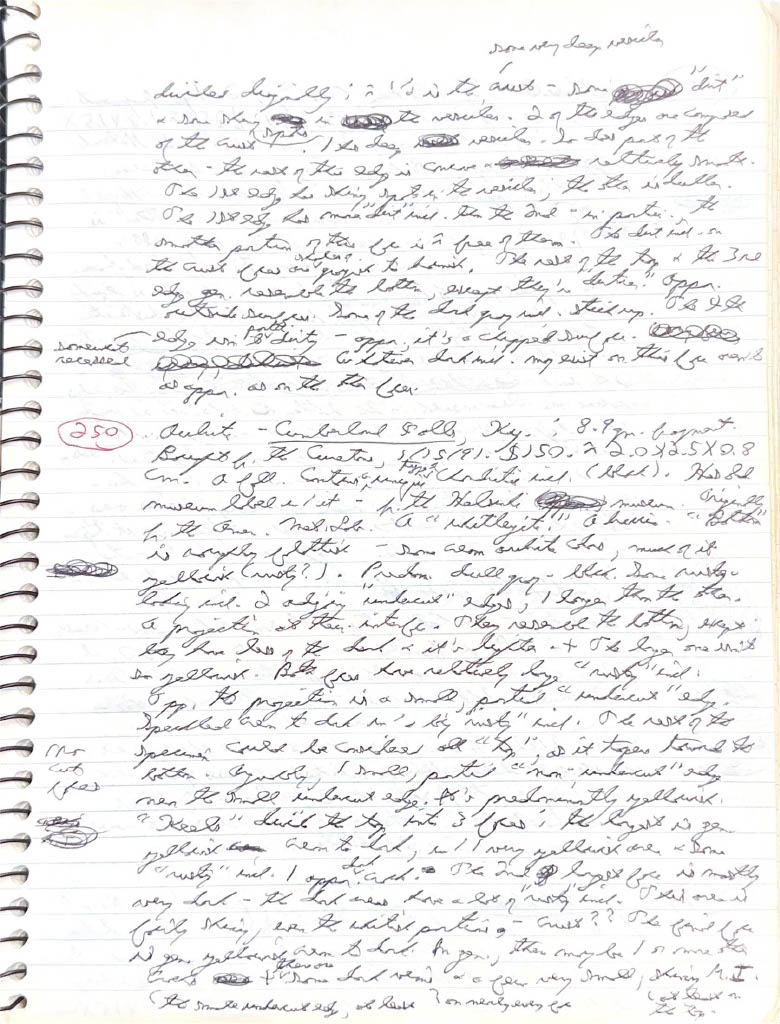 some very deep vesicles
divides diagonally; ≈ 1/2 is the crust - some "dirt"
& some shiny in the vesicles. 2 of the edges are composed
of the crust. 1 has deep vesicles in part of the
other - the rest of this edge is concave & relatively smooth.
The 1st edge has shiny spots in the vesicles; the other is duller.
The 1st edge has more "dirt" incl. than the 2nd - in partic., the
smoother portion of this face is ≈ free of them. The dirt incl. on
the crust faces are grayish to brownish. The rest of the top & the 3rd
edge gen. resemble the bottom, except they're "dirtier." Appar.
outside surfaces. Some of the dark gray incl. stick up. The 4th
edge isn't dirty - appar. it's a chipped surface.
somewhat
recessed
dark incl. may exist on this face aren't
as appar. as on the other faces.
250
Aubrite - Cumberland Falls, Ky.; 8.9 gm. fragment.
Bought f. the Curator, 1/15/91. $150. ≈ 2.0 X 2.5 X 0.8
cm. A fall. Contains unique chondritic incl. (black). Has old
museum label w/ it - f. the Helsinki museum. Originally
f. the Amer. Met. Lab. A "whitleyite!" A breccia. "Bottom"
is roughly flattish - some cream aubrite color, much of it
yellowish (rusty?). Predom. dull gray - black. Some rusty-
looking incl. 2 adjoining "undercut" edges, 1 longer than the other.
A projection at their interface. They resemble the bottom, except
they have less of the dark & it's lighter. The longer one isn't
so yellowish. Both faces have relatively large "rusty" incl.
Opp. the projection is a small, partial "undercut" edge.
Speckled cream to dark w/ a big "rusty" incl. The rest of the
No
cut
faces
specimen could be considered all "top", as it tapers toward the
bottom. Arguably, 1 small, partial "non-undercut" edge
near the small undercut edge. It's predominantly yellowish.
"Keels" divide the top into 3 faces; the largest is gen.
yellowish cream to dark, w/ 1 very yellowish area & some
"rusty" incl. 1 appar. dark crack. The 2nd largest face is mostly
very dark - the dark areas have a lot of "rusty" incl. This area is
fairly shiny, even the whitish portions - crust?? The final face
is gen. yellowish cream to dark. In gen., there may be 1 or more other
cracks & there are some dark veins & a few very small, shiny M.I.
(the small undercut edge, at least) on nearly every face
(at least on
the top.